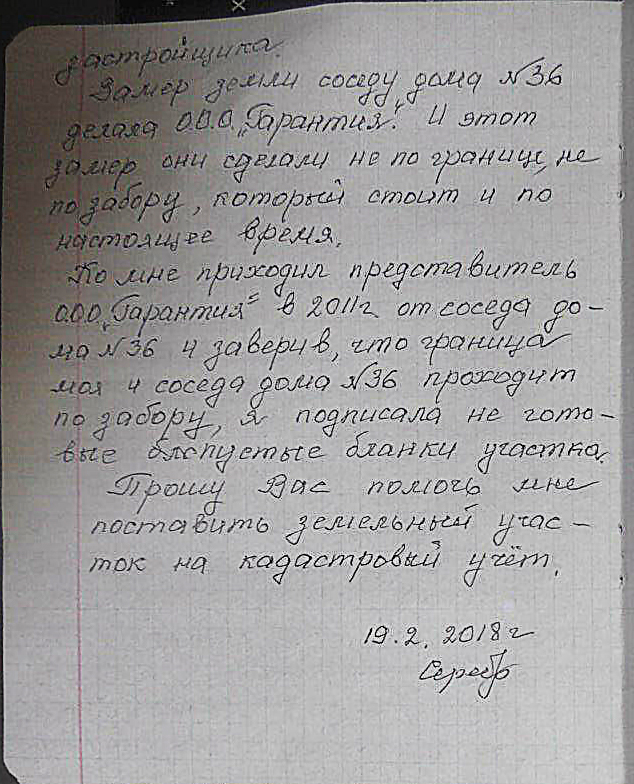 застройщика.
Замер земли соседу дома №36
делала О.О.О. „Гарантия". И этот
замер они сделали не по границе, не
по забору, который стоит и по
настоящее время.
Ко мне приходил представитель
О.О.О. „Гарантия" в 2011г от соседа до-
ма №36 и заверив, что граница
моя и соседа дома №36 проходит
по забору, я подписала не гото-
вые бланки участка.
Прошу Вас помочь мне
поставить земельный учас-
ток на кадастровый учёт.
19.2.2018г